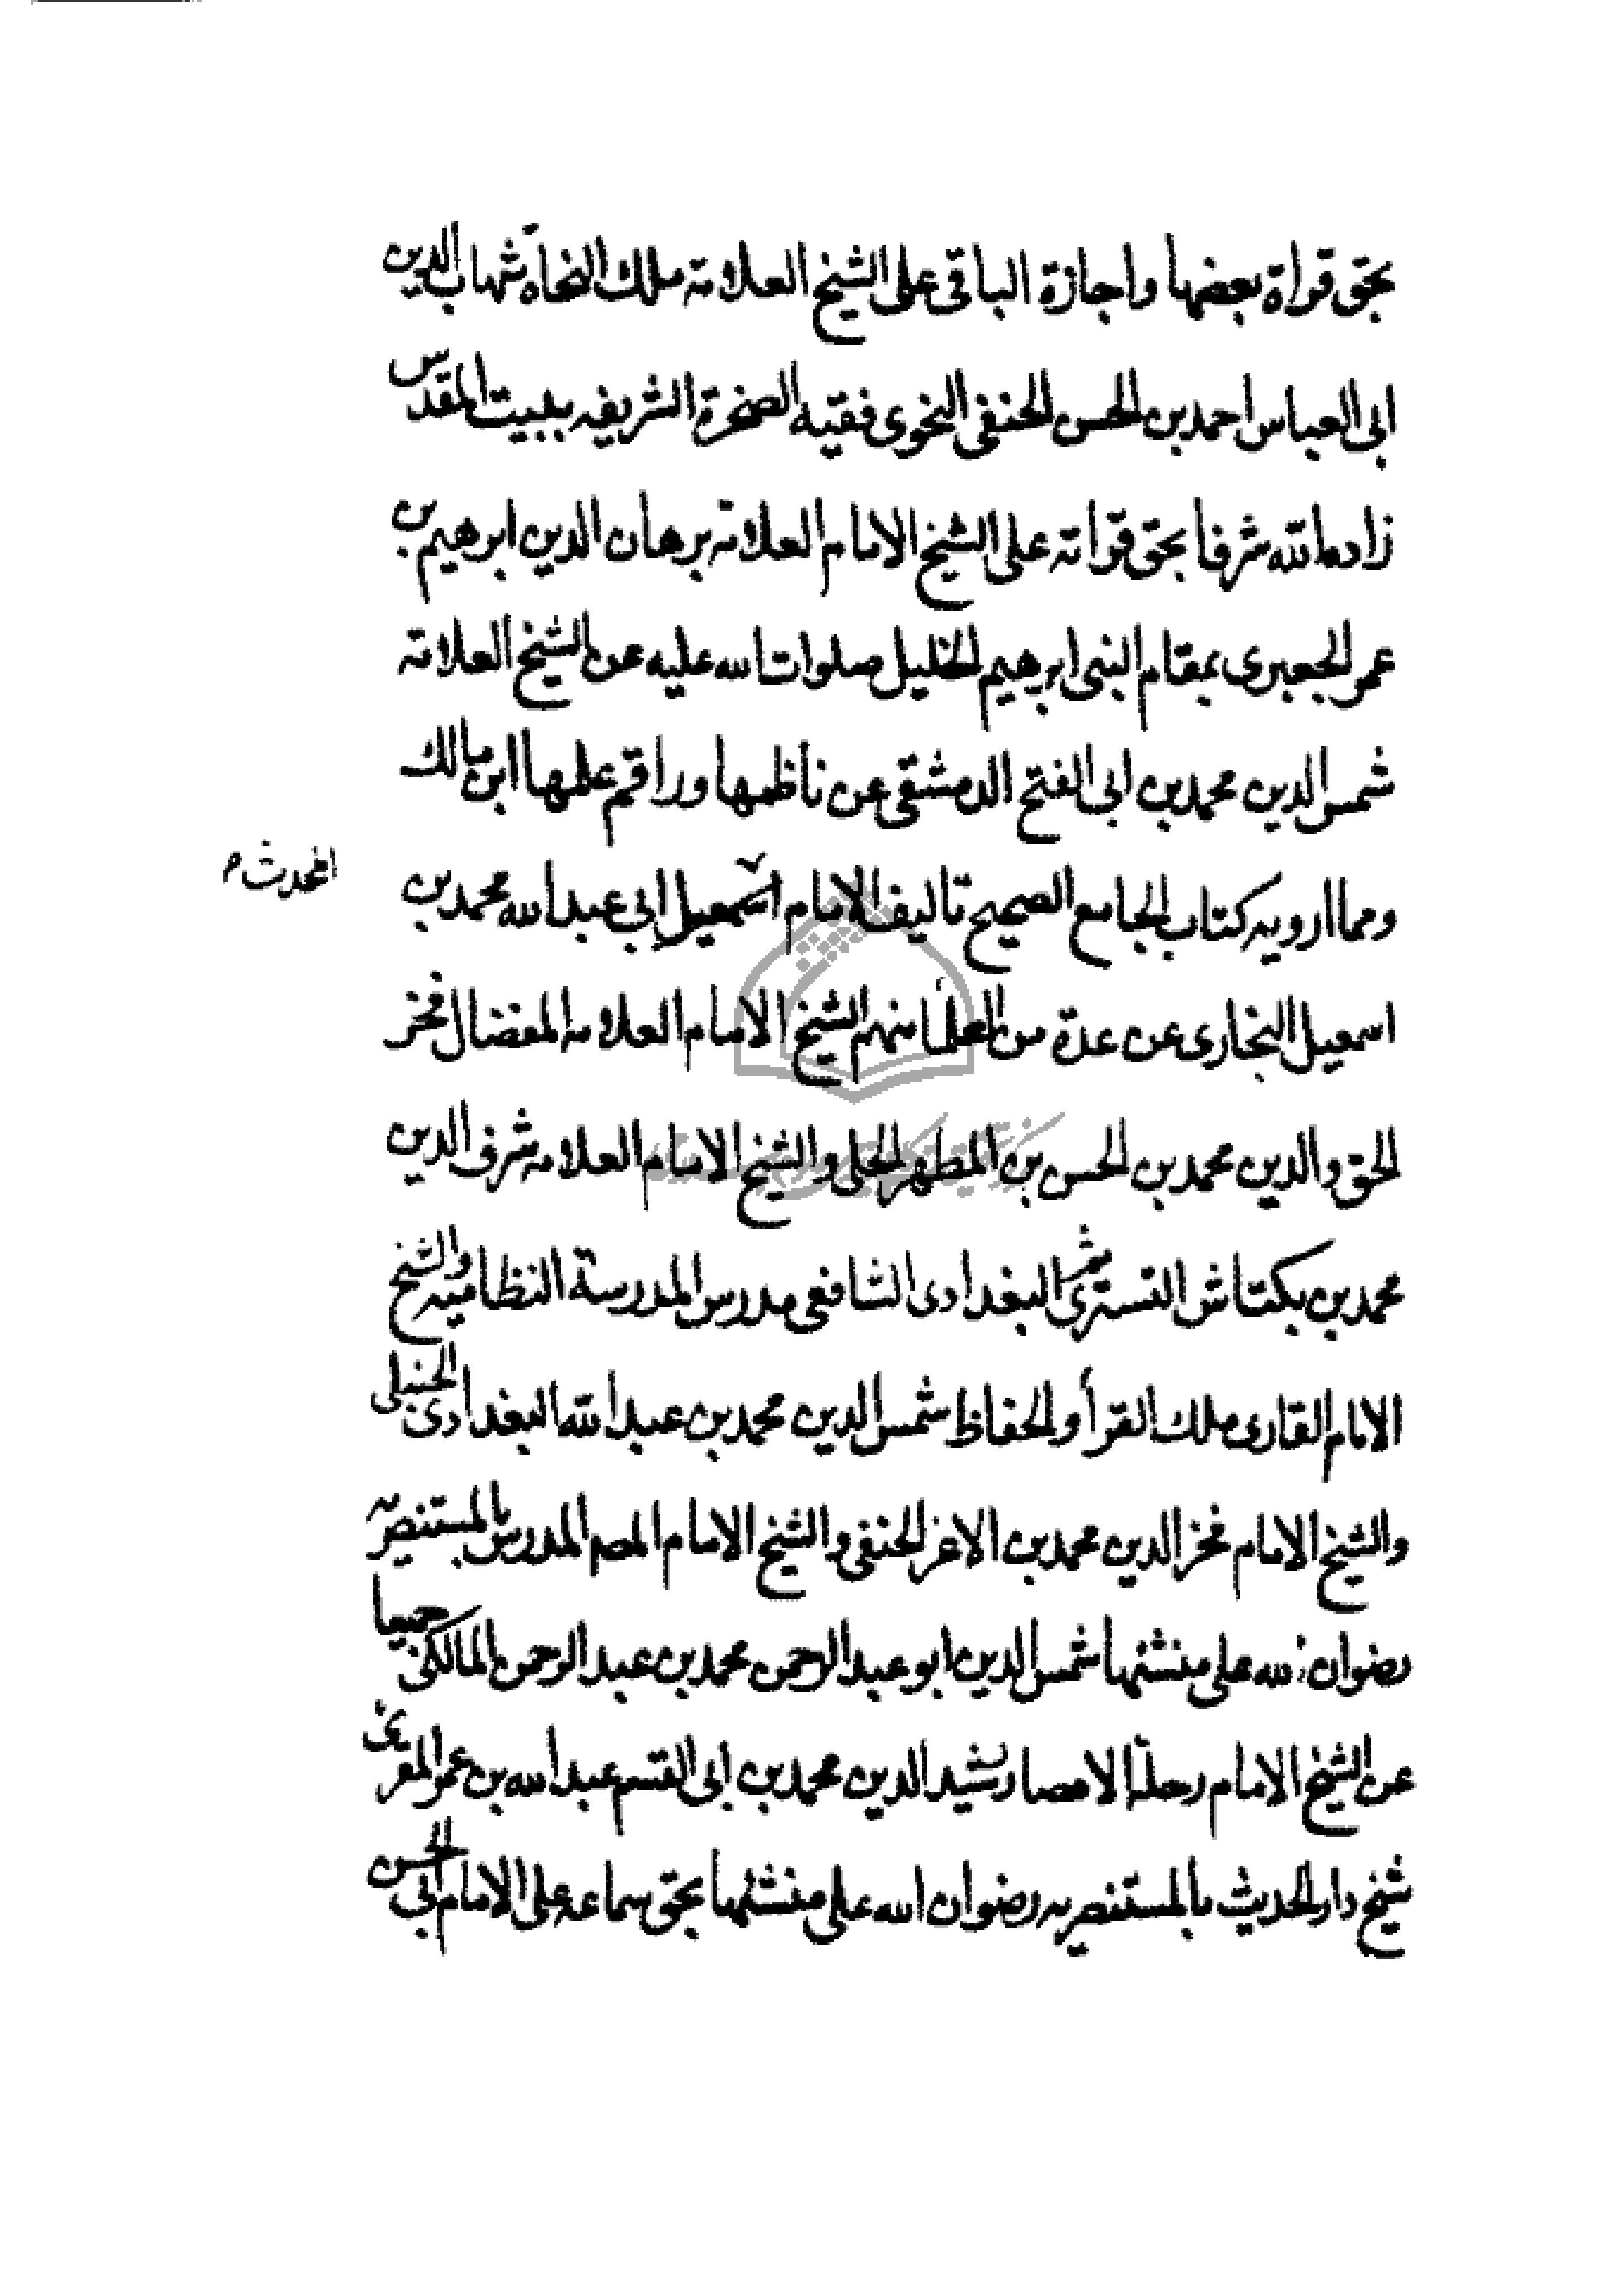 بحق قراة بعضها واجازة الباقى على الشيخ العلامة ملك النحاة شهاب الدين
ابى العباس احمد بن الحسن الحنفى النحوى فقيه الصخرة الشريفه ببيت المقدس
زاده الله شرفا بحق قراته على الشيخ الامام العلامة برهان الدين ابرهيم بن
عمر الجعبرى بمقام النبى ابرهيم الخليل صلوات الله عليه عن الشيخ العلامة
شمس الدين محمد بن ابى الفتح الدمشقى عن ناظمها وراقم علمها ابن مالك
ومما ارويه كتاب الجامع الصحيح تاليف الامام اسمعيل ابي عبد الله محمد بن
المحدث
اسمعيل البخارى عن عدة من العلمأ منهم الشيخ الامام العلامه المفضال فخر
الحق والدين محمد بن الحسن بن المطهر الحلى والشيخ الامام العلامه شرف الدين
محمد بن بكتاش التسترى ثم البغدادى الشافعى مدرس المدرسة النظاميه والشيخ
الامام القارى ملك القرأ والحفاظ شمس الدين محمد بن عبد الله البغدادى الحنبلى
والشيخ الامام فخر الدين محمد بن الاعز الحنفى والشيخ الامام المدرس بالمستنصريه
رضوان الله على منشئها شمس الدين ابو عبد الرحمن محمد بن عبد الرحمن المالكى جميعا
عن الشيخ الامام رحلة الامصار رشيد الدين محمد بن ابى القسم عبد الله بن عمر المقرى
شيخ دار الحديث بالمستنصريه رضوان الله على منشئها بحق سماعه على الامام ابى الحسن